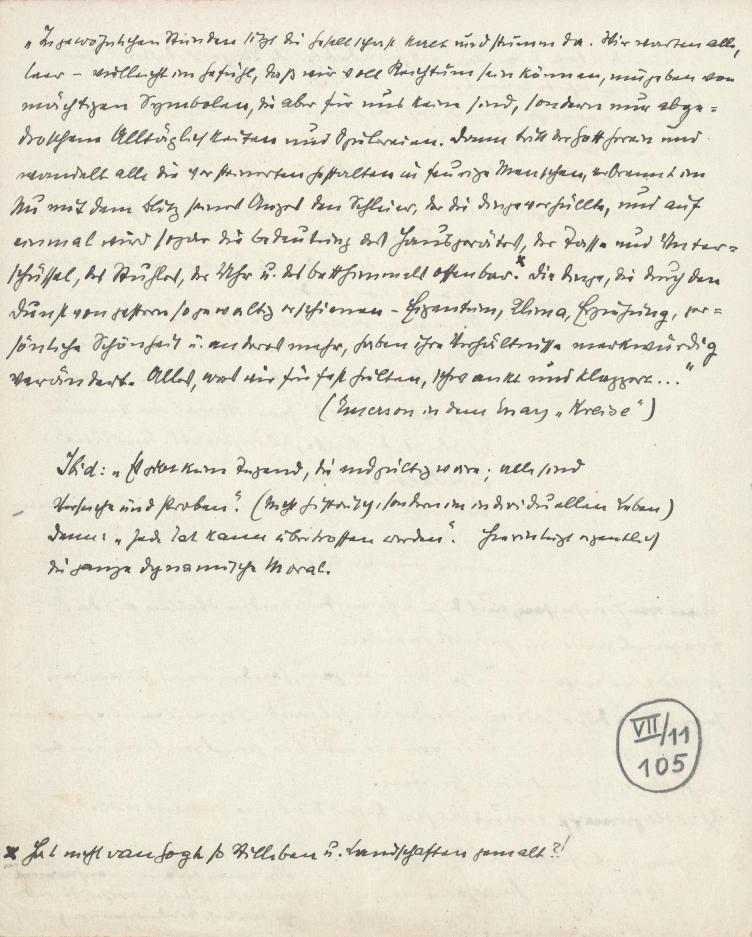 „In gewöhnlichen Stunden sitzt die Gesellschaft kalt und stumm da. Wir warten alle,
leer – vielleicht im Gefühl, daß wir voll Reichtum sein können, umgeben von
mächtigen Symbolen, die aber für uns keine sind, sondern nur abge=
droschene Alltäglichkeiten und Spielereien. Dann tritt der Gott herein und
wandelt alle die versteinerten Gestalten in feurige Menschen, verbrennt im
Nu mit dem Blitz seines Auges den Schleier, der die Dinge verhüllte, und auf
einmal wird sogar die Bedeutung des Hausgerätes, der Tasse und Unter=
schüssel, des Stuhles, der Uhr u. des Betthimmels offenbar.x Die Dinge, die durch den
Dunst von gestern so gewaltig erschienen – Eigentum, Klima, Erziehung, per=
sönliche Schönheit u. anderes mehr, haben ihre Verhältnisse merkwürdig
verändert. Alles, was wir für fest hielten, schwankt und klappert..."
(Emerson in dem Essay „Kreise")
Ibid: „Es gibt keine Tugend, die endgültig wäre; alle sind
Versuche und Proben". (Nicht historisch, sondern im individuellen Leben)
Denn: „Jede Tat kann übertroffen werden". Hierin liegt eigentlich
die ganze dynamische Moral.
VII/11
105
x Hat nicht van Gogh so Stilleben u. Landschaften gemalt?!